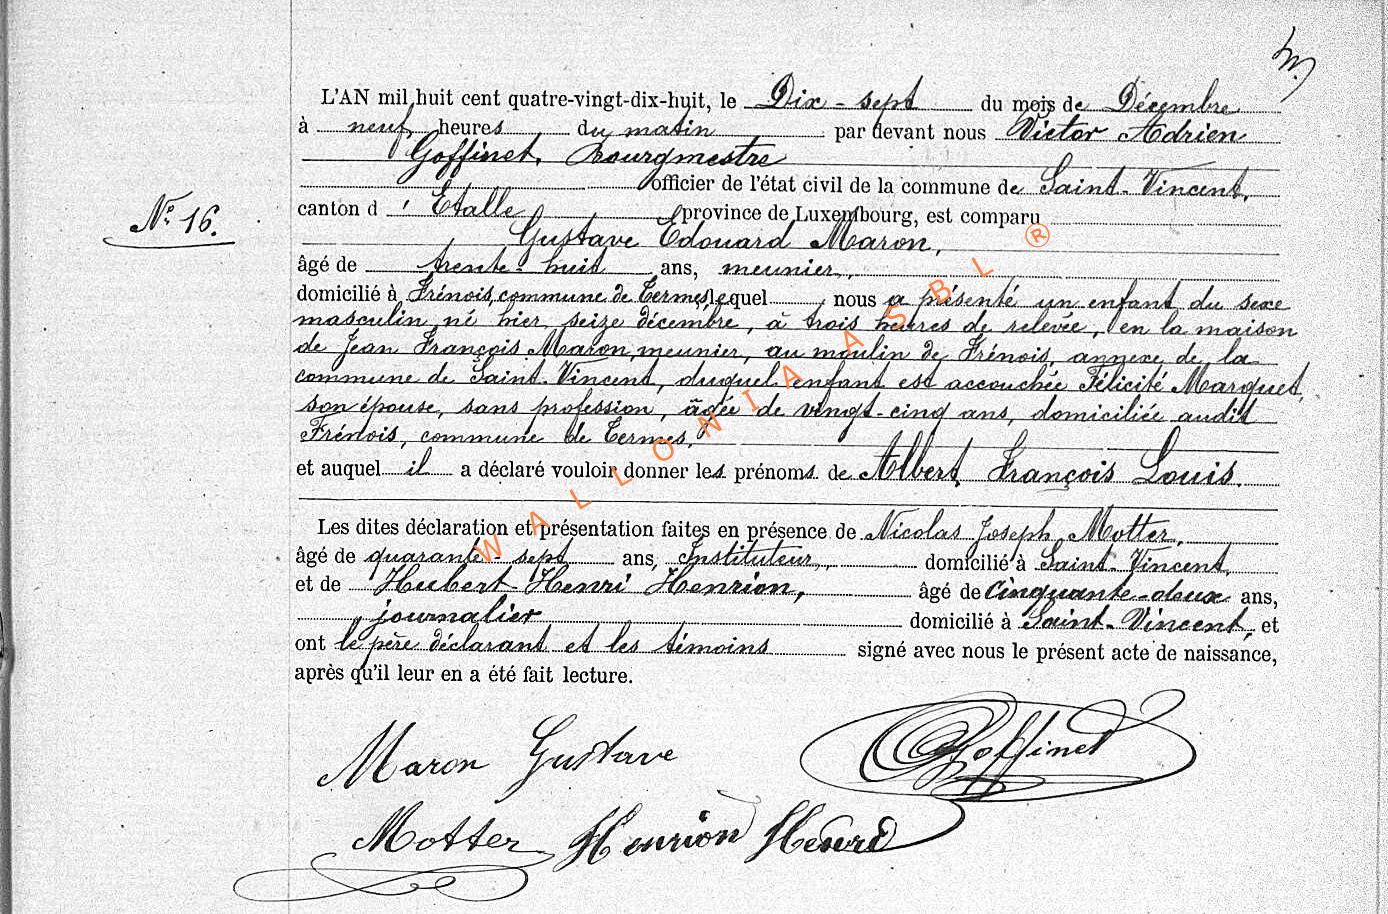 L'AN mil huit cent quatre-vingt-dix-huit, le Dix-sept du mois de Décembre
à neuf heures du matin par devant nous Victor Adrien
Goffinet, Bourgmestre
officier de l'état civil de la commune de Saint-Vincent,
N° 16.
canton d'Etalle province de Luxembourg, est comparu
Gustave Edouard Maron,
âgé de trente-huit ans, meunier,
domicilié à Frénois, commune de Termes, lequel nous a présenté un enfant du sexe
masculin né hier, seize décembre, à trois heures de relevée, en la maison
de Jean François Maron, meunier, au moulin de Frénois, annexe de la
commune de Saint-Vincent, duquel enfant est accouchée Félicité Marquet,
son épouse, sans profession, âgée de vingt-cinq ans, domiciliée audit
Frénois, commune de Termes,
et auquel il a déclaré vouloir donner les prénoms de Albert François Louis.
Les dites déclaration et présentation faites en présence de Nicolas Joseph Motter,
âgé de quarante-sept ans, Instituteur, domicilié à Saint-Vincent,
et de Hubert Henri Henrion, âgé de cinquante-deux ans,
journalier domicilié à Saint-Vincent, et
ont le père déclarant et les témoins signé avec nous le présent acte de naissance,
après qu'il leur en a été fait lecture.
Maron Gustave
Goffinet
Motter Henrion Henri
WALLONIA ASBL ®